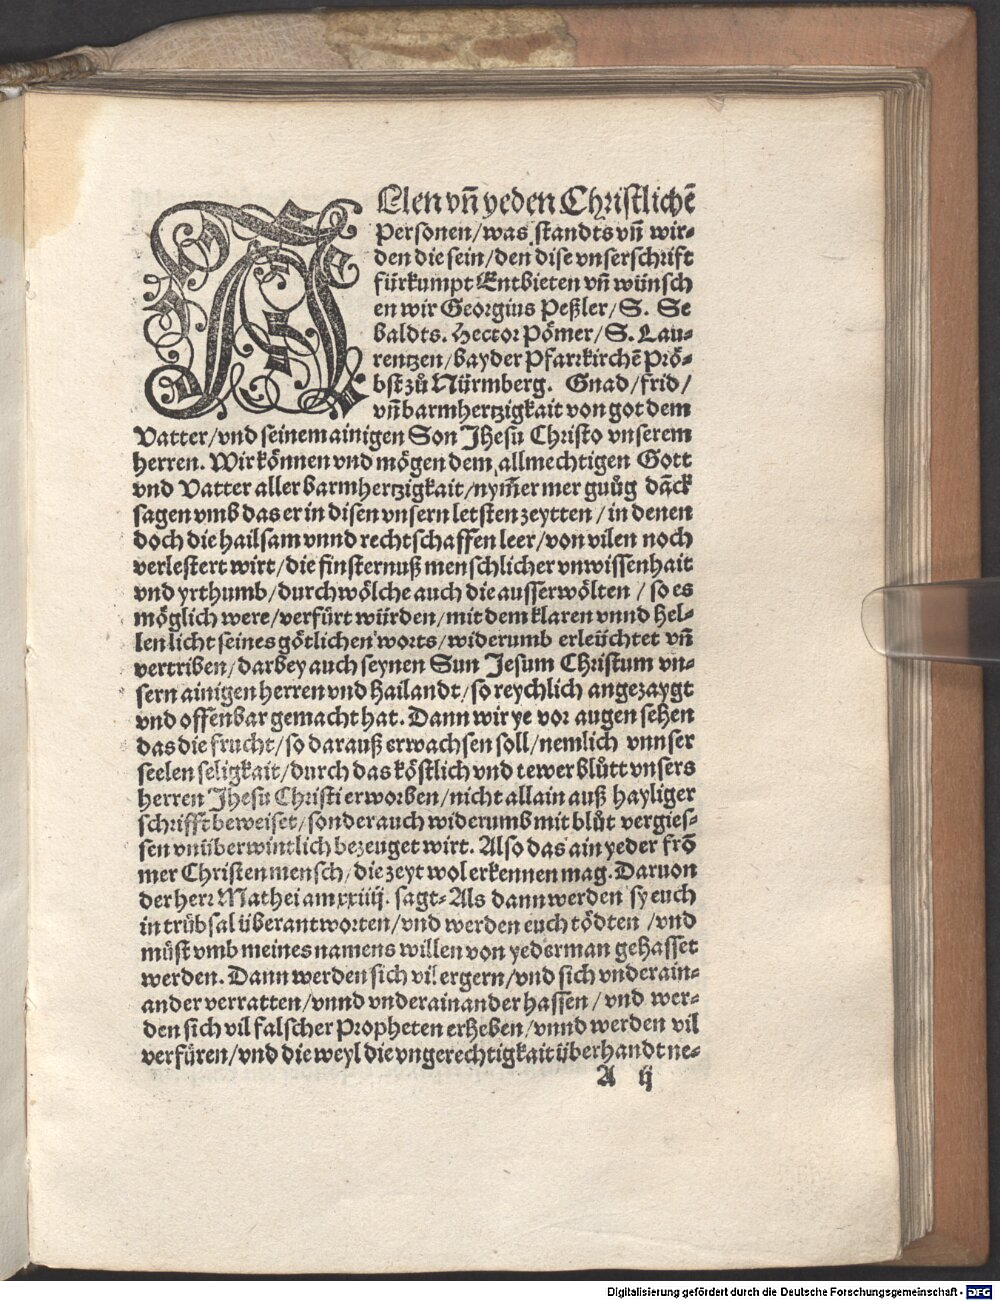 ALlen vñ yeden Christlichẽ
Personen/was standts vñ wir⸗
den die sein/den dise vnser schrift
fürkumpt Entbieten vñ wünsch
en wir Georgius Peßler/S. Se
baldts. Hector Pömer/S. Lau⸗
rentzen/bayder Pfarrkirchẽ Prö⸗
bst zů Nürmberg. Gnad/frid/
vñ barmhertzigkait von got dem
Vatter/vnd seinem ainigen Son Jhesu Christo vnserem
herren. Wir können vnd mögen dem allmechtigen Gott
vnd Vatter aller barmhertzigkait/nym̃er mer gnůg dãck
sagen vmb das er in disen vnsern letsten zeytten/in denen
doch die hailsam vnnd rechtschaffen leer/von vilen noch
verlestert wirt/die finsternuß menschlicher vnwissenhait
vnd yrthumb/durch wölche auch die ausserwölten/so es
möglich were/verfürt würden/mit dem klaren vnnd hel⸗
len licht seines götlichen worts/widerumb erleüchtet vñ
vertriben/darbey auch seynen Sun Jesum Christum vn⸗
sern ainigen herren vnd hailandt/so reychlich angezaygt
vnd offenbar gemacht hat. Dann wir ye vor augen sehen
das die frucht/so darauß erwachsen soll/nemlich vnnser
seelen seligkait/durch das köstlich vnd tewer blůtt vnsers
herren Jhesu Christi erworben/nicht allain auß hayliger
schrifft beweiset/sonder auch widerumb mit blůt vergies⸗
sen vnüberwintlich bezeuget wirt. Also das ain yeder frõ
mer Christenmensch/die zeyt wol erkennen mag. Daruon
der herr Mathei am xxiiij. sagt⸗Als dann werden sy euch
in trübsal überantworten/vnd werden euch tödten/vnd
müst vmb meines namens willen von yederman gehasset
werden. Dann werden sich vil ergern/vnd sich vnderain⸗
ander verratten/vnnd vnderainander hassen/vnd wer⸗
den sich vil falscher Propheten erheben/vnnd werden vil
verfüren/vnd die weyl die vngerechtigkait überhandt ne⸗
A ij
Digitalisierung gefördert durch die Deutsche Forschungsgemeinschaft - DFG